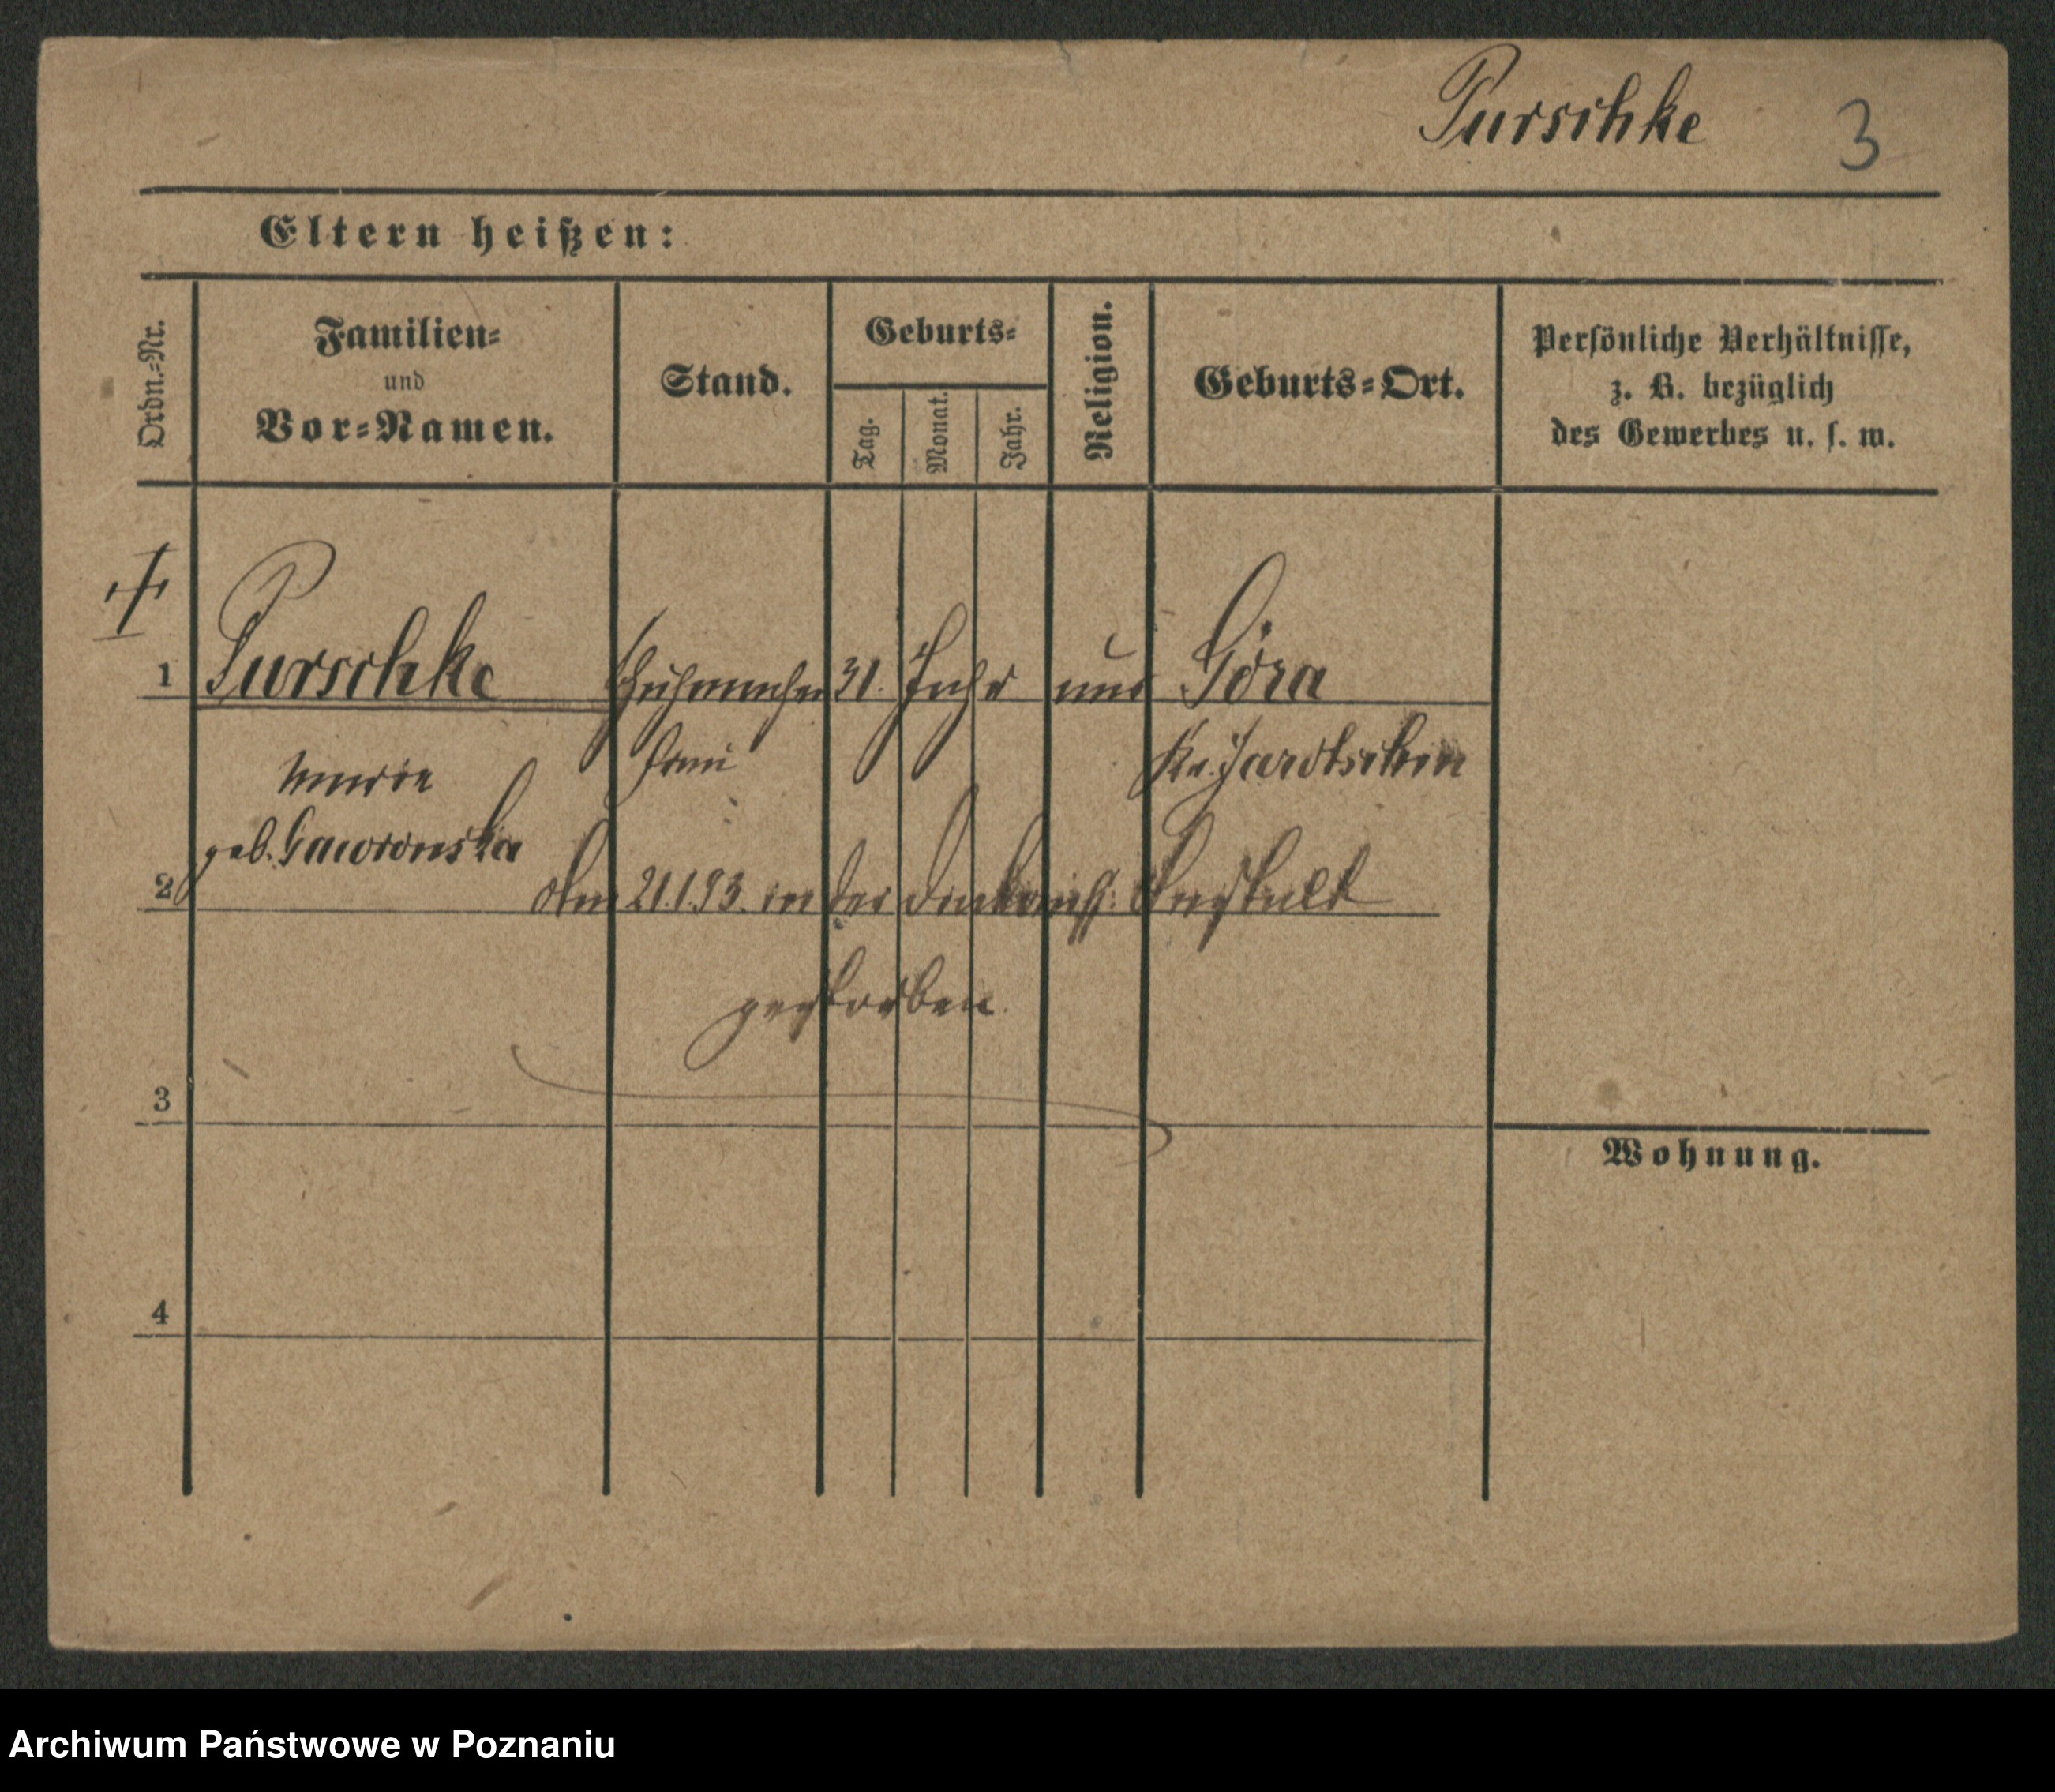 Purschke 3
Eltern heißen:
Ordn.-Nr.
Familien-
und
Vor-Namen.
Stand.
Geburts-
Tag.
Monat.
Jahr.
Religion.
Geburts-Ort.
Persönliche Verhältnisse,
z. B. bezüglich
des Gewerbes u. s. w.
1 Purschke Schuhmacher 31. Jahr aus Góra
Marie Frau Kr. Jarotschin
geb. Gaworonska
2 Am 21.1.93. in der Diakoniss. Anstalt
gestorben.
3
Wohnung.
4
Archiwum Państwowe w Poznaniu